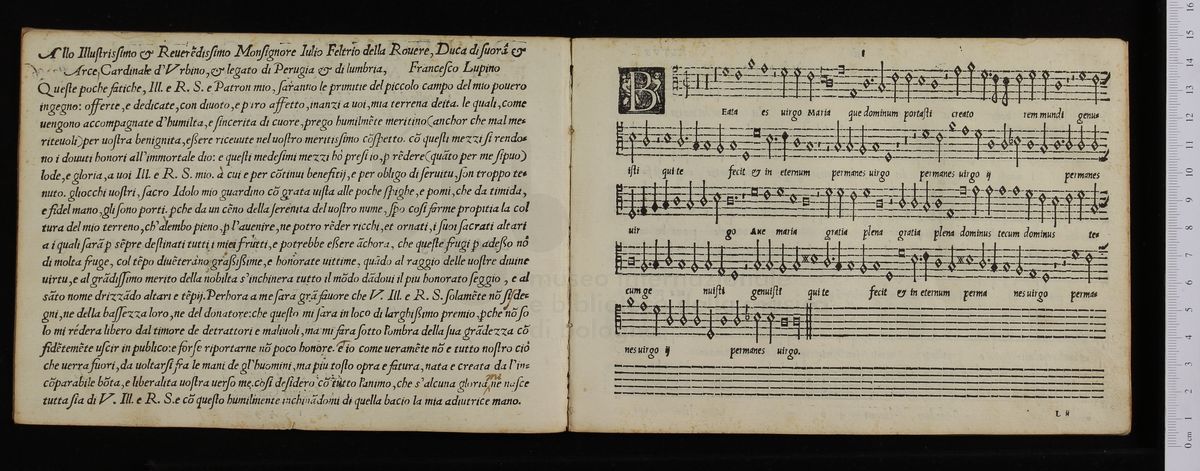 Allo Illustrissimo & Reuerẽdissimo Monsignore Iulio Feltrio della Rouere, Duca di suorã &
Arce, Cardinale d'Vrbino, & legato di Perugia & di lumbria, Francesco Lupino
Queste poche fatiche, Ill. e R. S. e Patron mio, saranno le primitie del piccolo campo del mio pouero
ingegno: offerte, e dedicate, con diuoto, e puro affetto, inanzi a uoi, mia terrena deita. le quali, come
uengono accompagnate d'humilta, e sincerita di cuore, prego humilmẽte meritino (anchor che mal me-
riteuoli) per uostra benignita, essere riceuute nel uostro meritissimo cõspetto. cõ questi mezzi si rendo-
no i douuti honori all'immortale dio: e questi medesimi mezzi hò presi io, p rẽdere (quãto per me si puo)
lode, e gloria, a uoi Ill. e R. S. mio. à cui e per cõtinui benefitij, e per obligo di seruitu, son troppo te-
nuto. gliocchi uostri, sacro Idolo mio guardino cõ grata uista alle poche spighe, e pomi, che da timida,
e fidel mano, gli sono porti. pche da un cẽno della serenita del uostro nume, spo cosi farme propitia la col
tura del mio terreno, ch'a lembo pieno, p l'auenire, ne potro rẽder ricchi, et ornati, i suoi sacrati altari
a i quali sarã p sẽpre destinati tutti i miei frutti, e potrebbe essere ãchora, che queste frugi p adesso nõ
di molta fruge, col tẽpo diuẽterãno grassissime, e honorate uittime, quãdo al raggio delle uostre diuine
uirtu, e al grãdissimo merito della nobilta s'inchinera tutto il mõdo dãdoui il piu honorato seggio, e al
sãto nome drizzãdo altari e tẽpij. Perhora a me sara grã fauore che V. Ill. e R. S. solamẽte nõ si sde-
gni, ne della bassezza loro, ne del donatore: che questo mi sara in loco di larghissimo premio, pche nõ so
lo mi rẽdera libero dal timore de detrattori e maliuoli, ma mi fara sotto l'ombra della sua grãdezza cõ
fidẽtemẽte uscir in publico: e forse riportarne nõ poco honore. E io come ueramẽte nõ e tutto nostro ciò
che uerra fuori, da uoltarsi fra le mani de gl'huomini, ma piu tosto opra e fatura, nata e creata da l'in-
cõparabile bõta, e liberalita uostra uerso me. cosi desidero cõ tutto l'animo, che s'alcuna gloria ne nasce
tutta sia di V. Ill. e R. S. e cõ questo humilmente inchinãdomi di quella bacio la mia adiutrice mano.
1
BEata es uirgo Maria que dominum portasti creato rem mundi genu-
isti qui te fecit & in eternum permanes uirgo permanes uirgo ij permanes
uir go Aue maria gratia plena gratia plena dominus tecum dominus te-
cum ge nuisti genuistit qui te fecit & in eternum perma nes uirgo perma-
nes uirgo ij permanes uirgo.
L ii
museo
0 cm 1 2 3 4 5 6 7 8 9 10 11 12 13 14 15 16